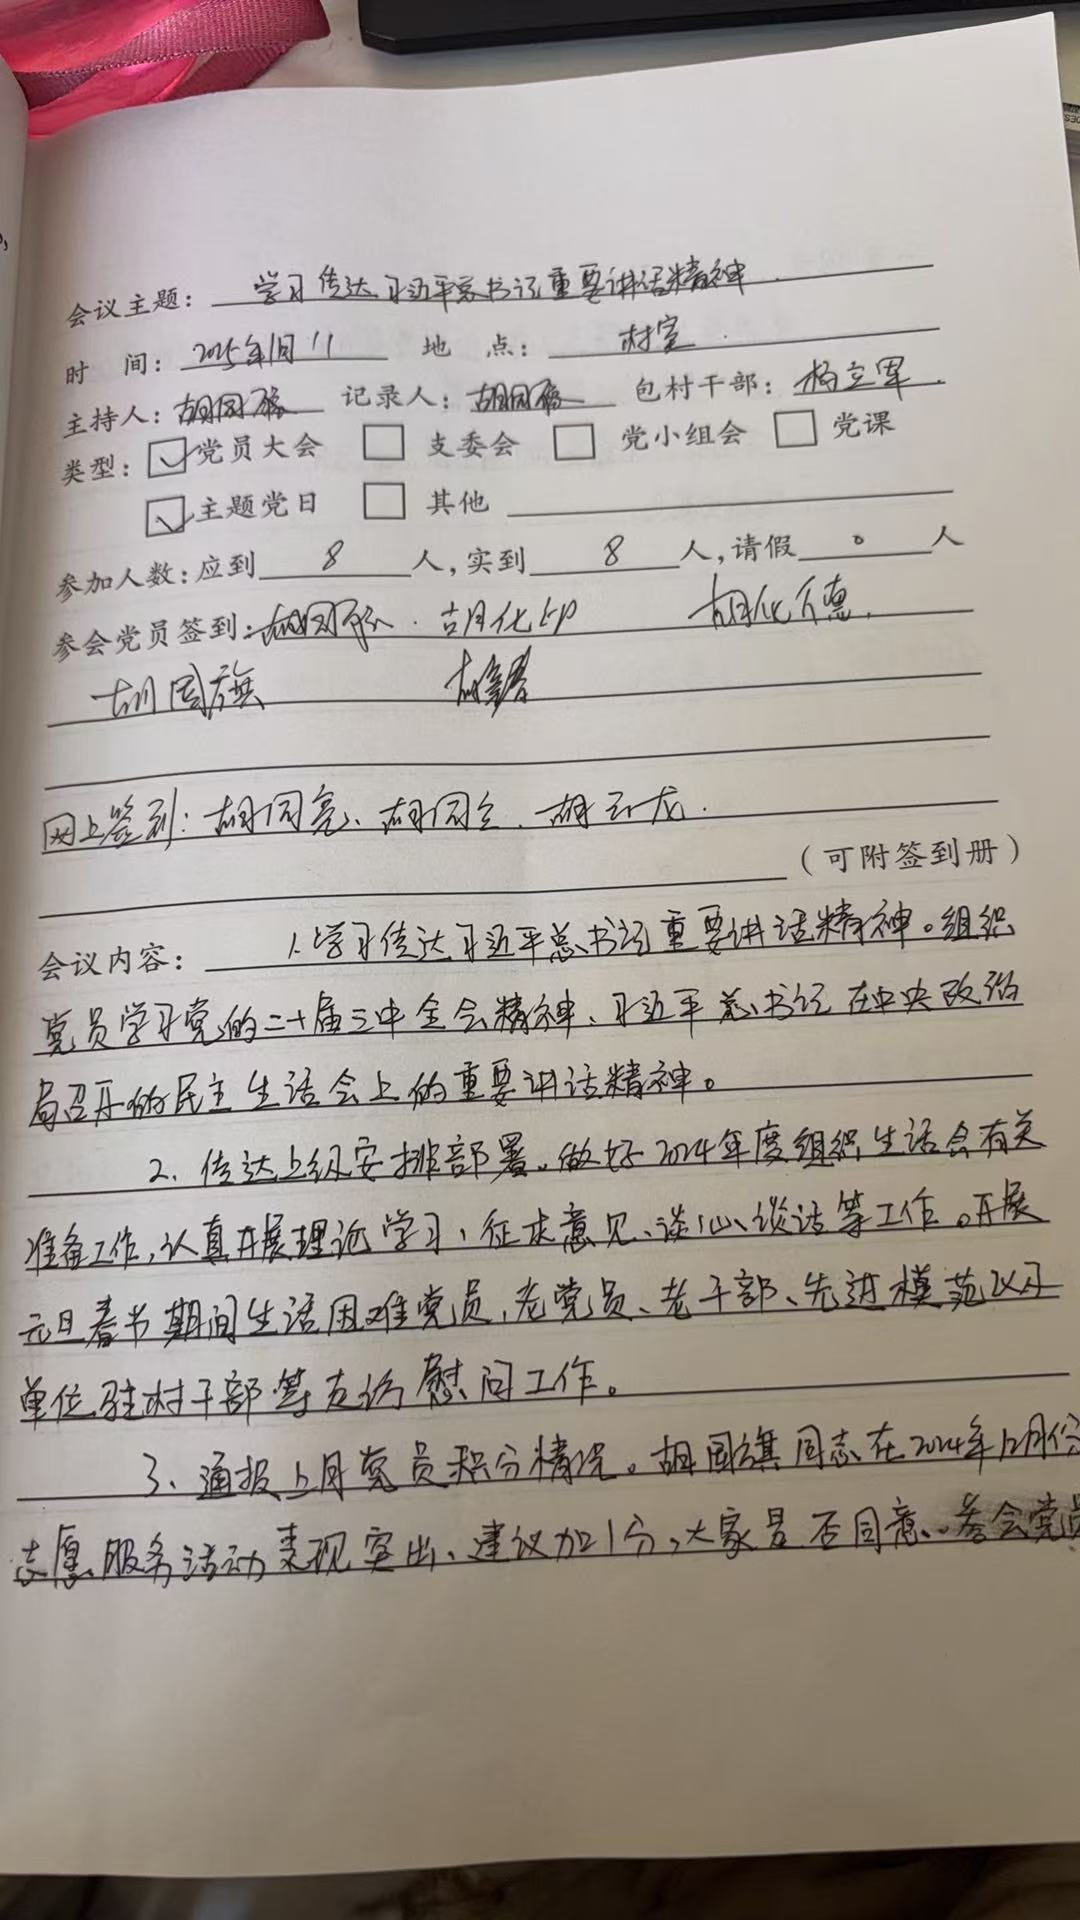 会议主题：学习传达习近平总书记重要讲话精神.
时 间：2025年1月11 地 点：村室.
主持人：胡同 记录人：胡同 包村干部：杨立军.
类型：党员大会 支委会 党小组会 党课
主题党日 其他
参加人数：应到 8 人，实到 8 人，请假 0 人
参会党员签到：胡化印 胡化德.
胡国旗
网上签到：胡同亮、胡同立.胡云龙.
（可附签到册）
会议内容：1.学习传达习近平总书记重要讲话精神。组织
党员学习党的二十届三中全会精神、习近平总书记在中央政治
局召开的民主生活会上的重要讲话精神。
2、传达上级安排部署。做好2024年度组织生活会有关
准备工作，认真开展理论学习、征求意见、谈心谈话等工作。开展
元旦春节期间生活困难党员、老党员、老干部、先进模范以及
单位驻村干部等走访慰问工作。
3、通报上月党员积分情况。胡国旗同志在2024年12月份
志愿服务活动表现突出、建议加1分，大家是否同意。参会党员